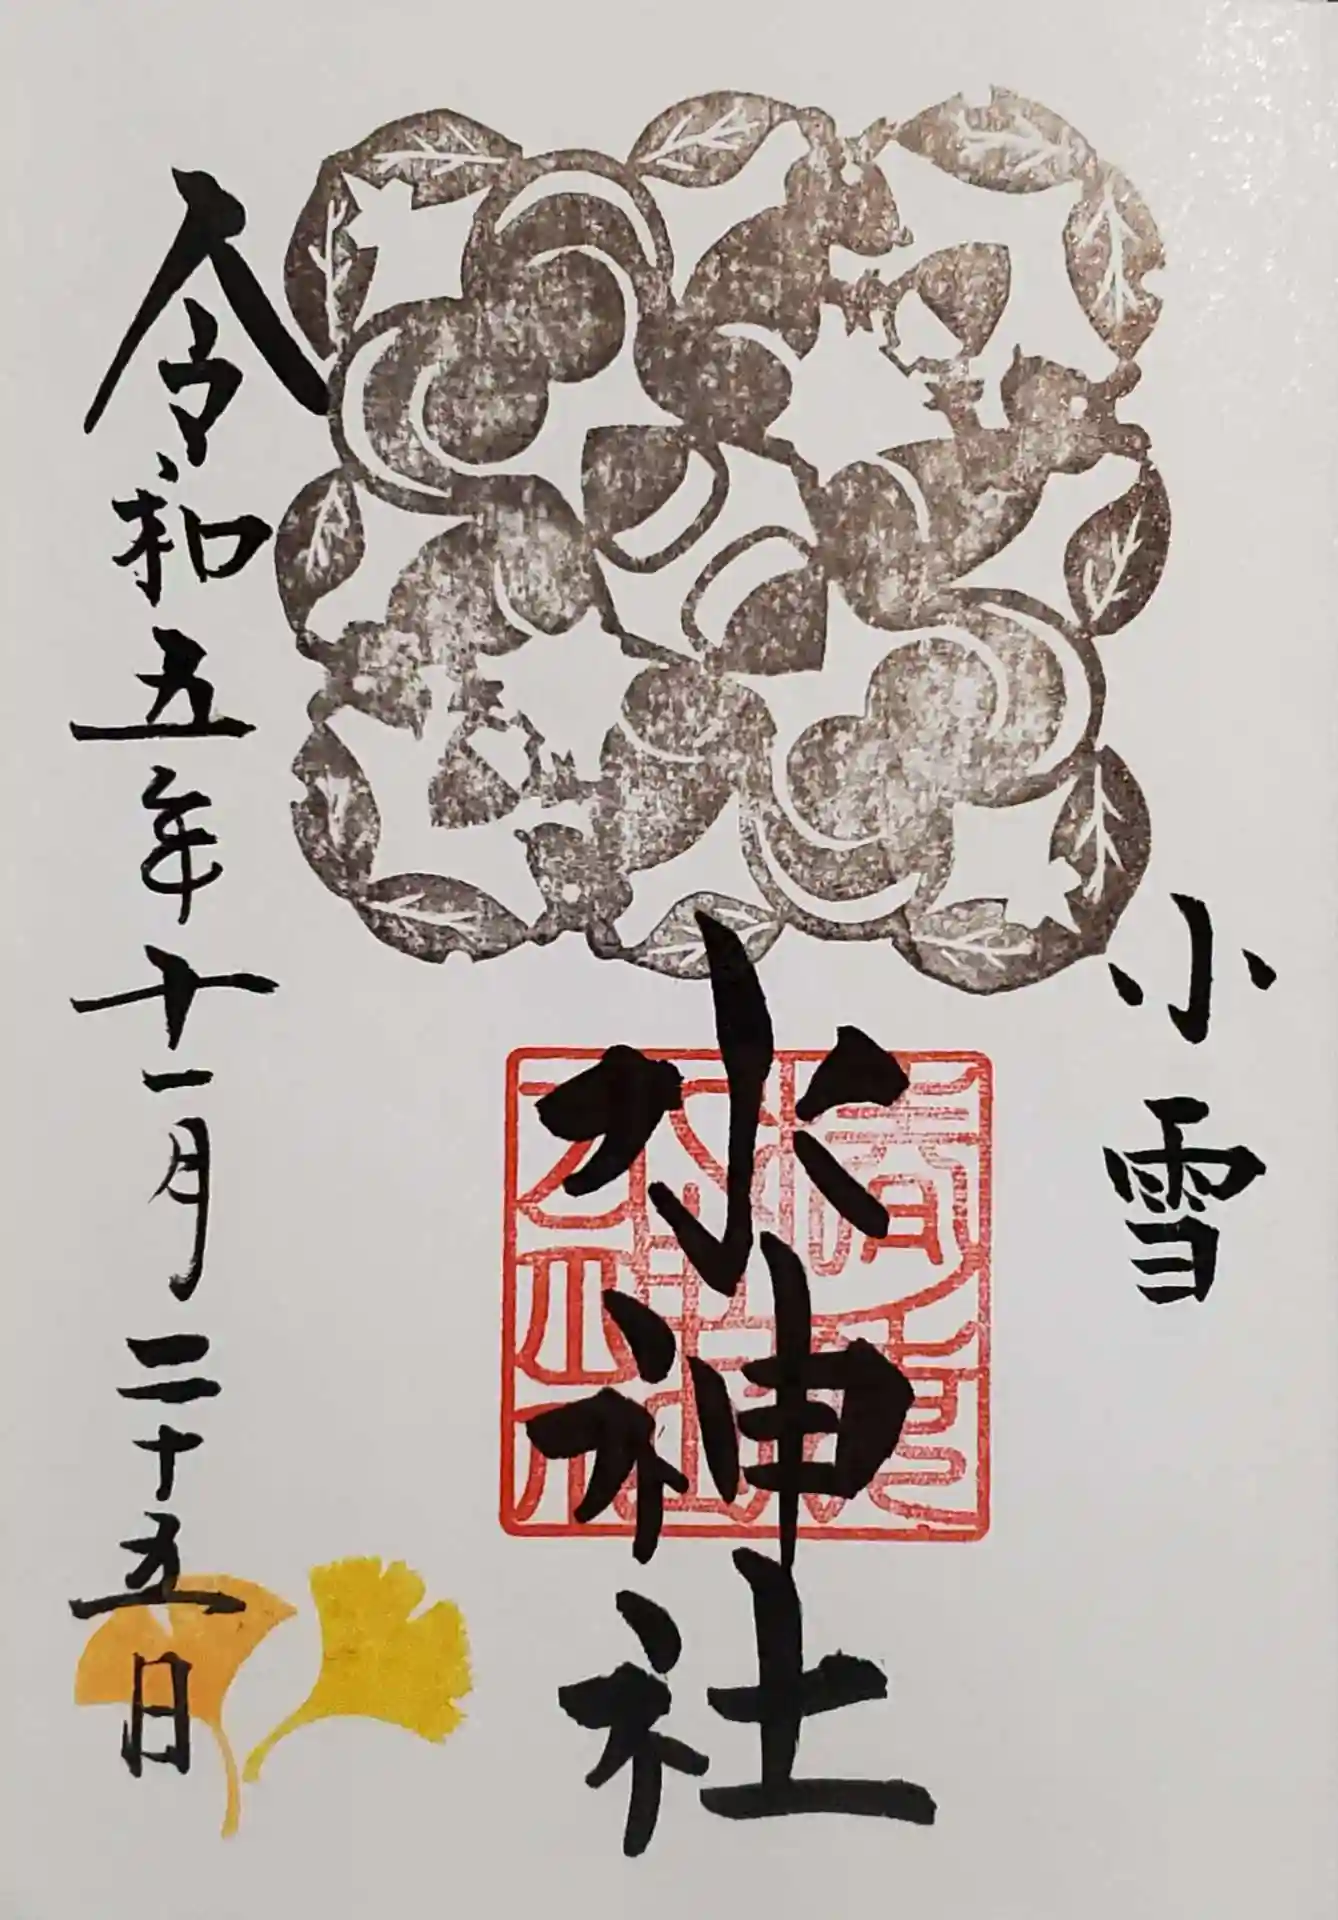 小雪
水神社
令和五年十一月二十五日